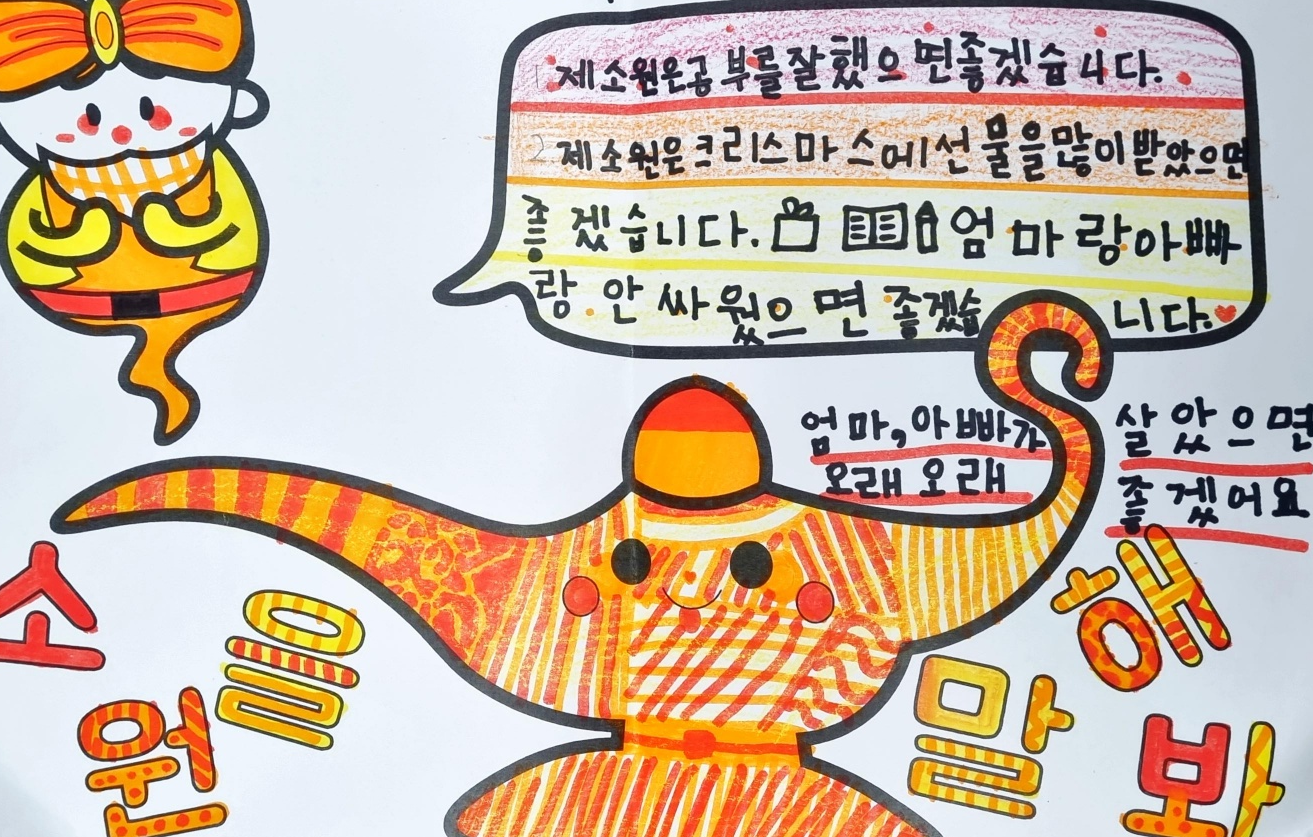 1. 제소원은공부를잘했으면좋겠습니다.
2. 제소원은크리스마스에선물을많이받았으면
좋겠습니다. 엄마랑아빠
랑 안 싸웠으면 좋겠습니다.
엄마,아빠가 살았으면
오래 오래 좋겠어요
소원을 말해 봐